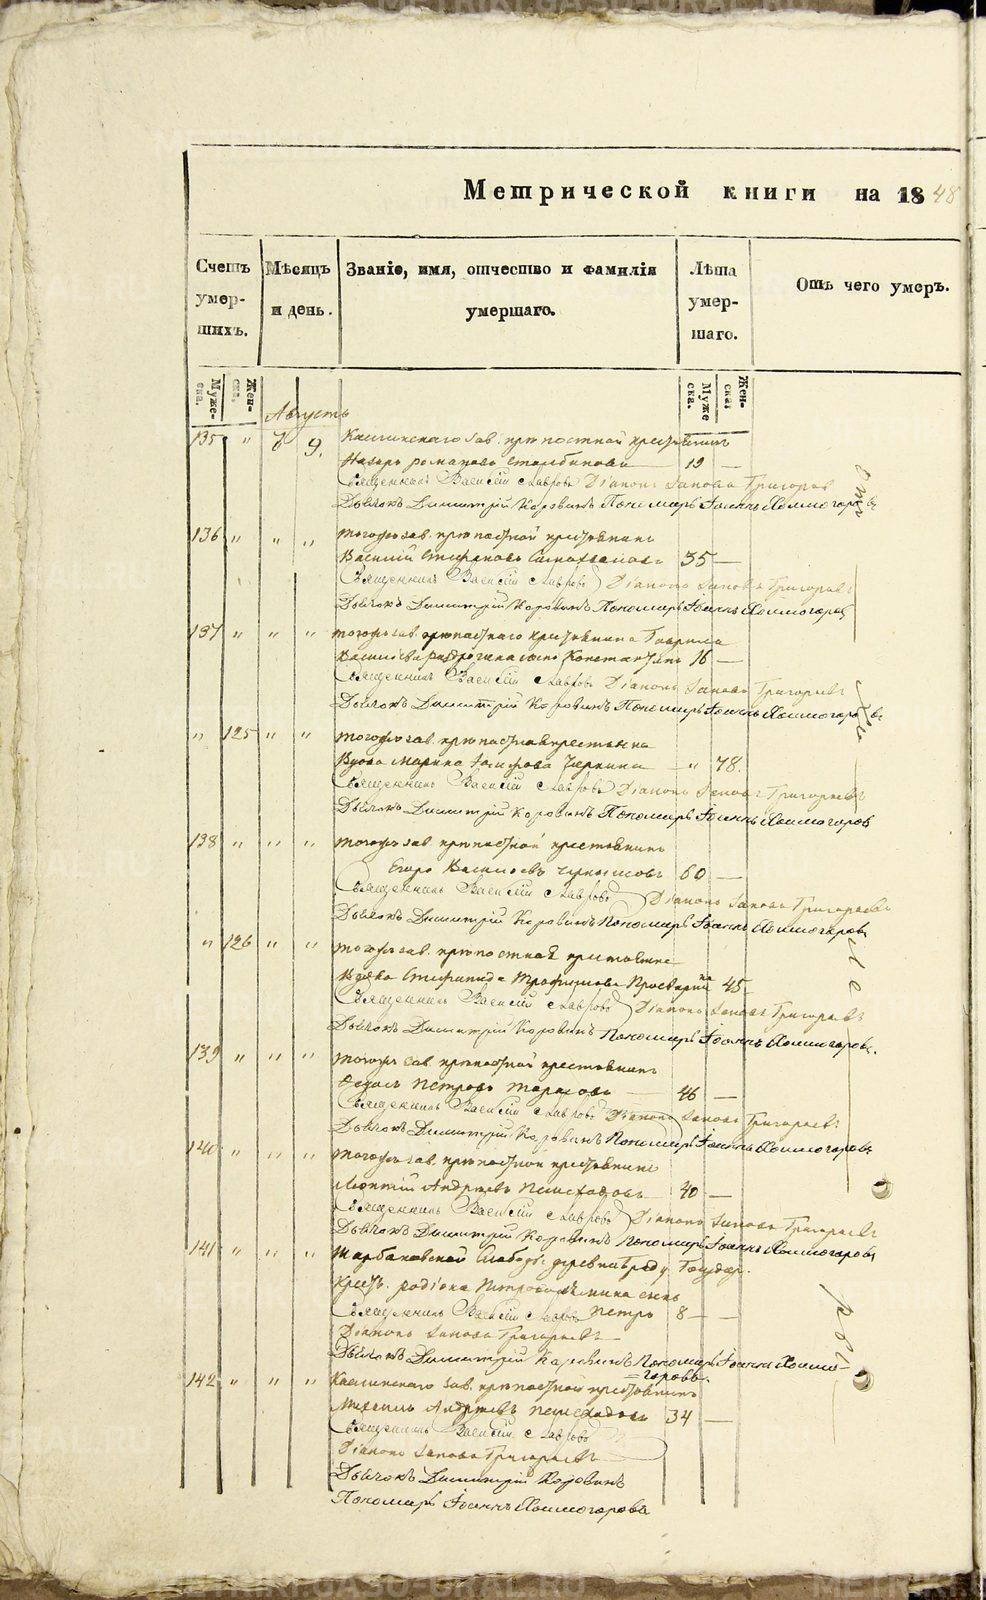 METRIKI.GASO-URAL.RU
Метрической книги на 1848
Счетъ умер-шихъ.
Мѣсяцъ и день.
Званіе, имя, отчество и фамилія умершаго.
Лѣта умер-шаго.
Отъ чего умеръ.
Муже-ска.
Жен-ска.
Муже ска.
Жен-ска.
Августъ
135 " 7 9. Каслинскаго зав. крѣпостной крестьянинъ
Назаръ Романовъ 19 —
Священникъ Василій Лавровъ Діаконъ Григорьевъ
Дьячокъ Димитрій Коровинъ Пономарь Іоаннъ Холмогоровъ
136 " " " тогоже зав. крѣпостной крестьянинъ
Василій Стефановъ 35 —
Священникъ Василій Лавровъ Діаконъ Григорьевъ
Дьячокъ Димитрій Коровинъ Пономарь Іоаннъ Холмогоровъ
137 " " " тогоже зав. крѣпостнаго крестьянина Гаврила
Васильева сынъ Константинъ 16 —
Священникъ Василій Лавровъ Діаконъ Григорьевъ
Дьячокъ Димитрій Коровинъ Пономарь Іоаннъ Холмогоровъ
" 125 " " тогоже зав. крѣпостная крестьянка
Вдова Марина " 78.
Священникъ Василій Лавровъ Діаконъ Григорьевъ
Дьячокъ Димитрій Коровинъ Пономарь Іоаннъ Холмогоровъ
138 " " " тогоже зав. крѣпостной крестьянинъ
Егоръ Васильевъ 60 —
Священникъ Василій Лавровъ Діаконъ Григорьевъ
Дьячокъ Димитрій Коровинъ Пономарь Іоаннъ Холмогоровъ
" 126 " " тогоже зав. крѣпостная крестьянка
Вдова Стефанида Трофимова 45
Священникъ Василій Лавровъ Діаконъ Григорьевъ
Дьячокъ Димитрій Коровинъ Пономарь Іоаннъ Холмогоровъ.
139 " " " тогоже зав. крѣпостной крестьянинъ
Петровъ Тарасовъ 46 —
Священникъ Василій Лавровъ Діаконъ Григорьевъ
Дьячокъ Димитрій Коровинъ Пономарь Іоаннъ Холмогоровъ
140 " " " тогоже зав. крѣпостной крестьянинъ
Леонтій Андреевъ Пешеходовъ 40 —
Священникъ Василій Лавровъ Діаконъ Григорьевъ
Дьячокъ Димитрій Коровинъ Пономарь Іоаннъ Холмогоровъ
141 " " " деревни Государ.
Крест. Родіона Петрова сынъ
Священникъ Василій Лавровъ Петръ 8 —
Діаконъ Григорьевъ
Дьячокъ Димитрій Коровинъ Пономарь Іоаннъ Холмо-
=горовъ.
142 " " " Каслинскаго зав. крѣпостной крестьянинъ
Михаилъ Андреевъ Пешеходовъ 34 —
Священникъ Василій Лавровъ
Діаконъ Григорьевъ
Дьячокъ Димитрій Коровинъ
Пономарь Іоаннъ Холмогоровъ
METRIKI.GASO-URAL.RU